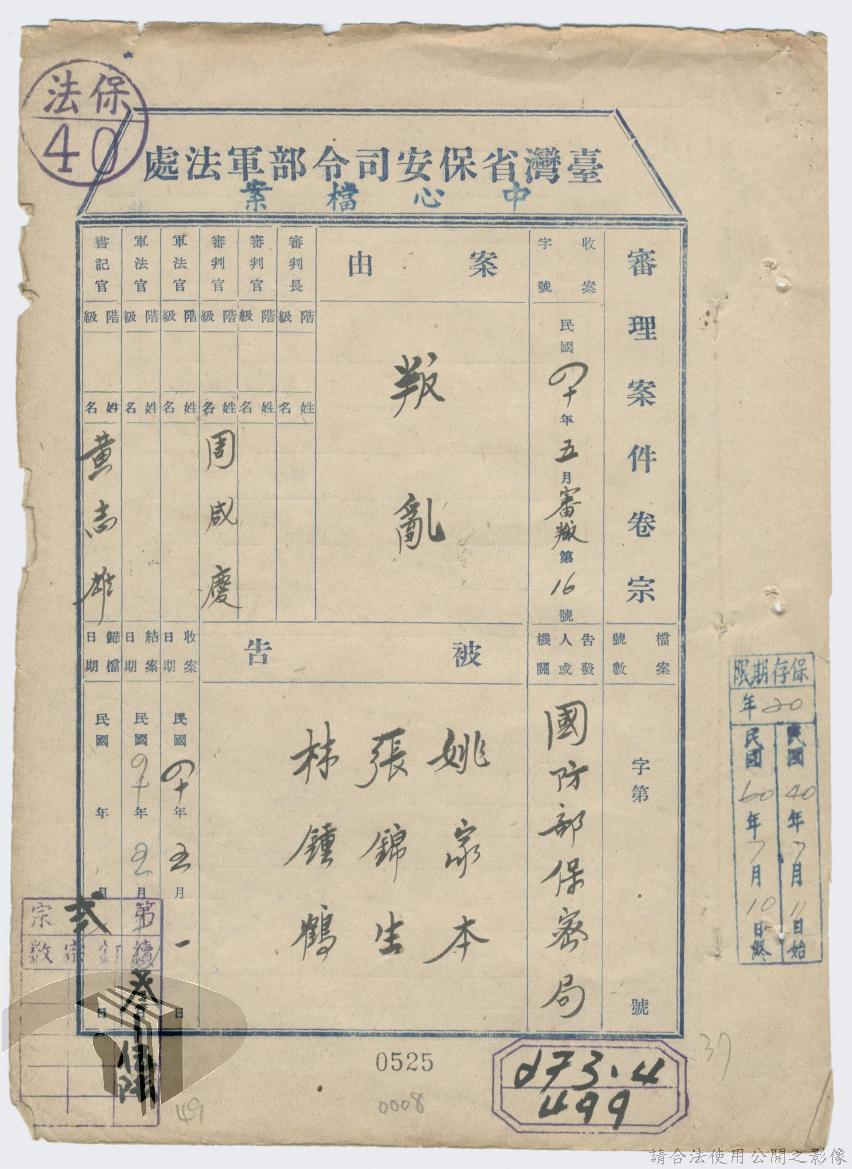 保法
40
臺灣省保安司令部軍法處
中心檔案
審理案件卷宗
檔案號數
字第
號
收案字號
民國四十年五月審叛第16號
告發人或機關
國防部保密局
案由
叛亂
被告
姚家本
張錦生
林鍾鶴
審判長
階級
姓名
審判官
階級
姓名
審判官
階級
姓名
周咸慶
軍法官
階級
姓名
軍法官
階級
姓名
書記官
階級
姓名
黃志雄
收案日期
民國四十年五月一日
結案日期
民國
年五月
日
歸檔日期
民國
年
月
日
保存期限
20年
民國40年7月11日始
民國60年7月10日終
第
宗
貳
續訂宗數
0525
0008
49
37
073.4
499
請合法使用公開之影像